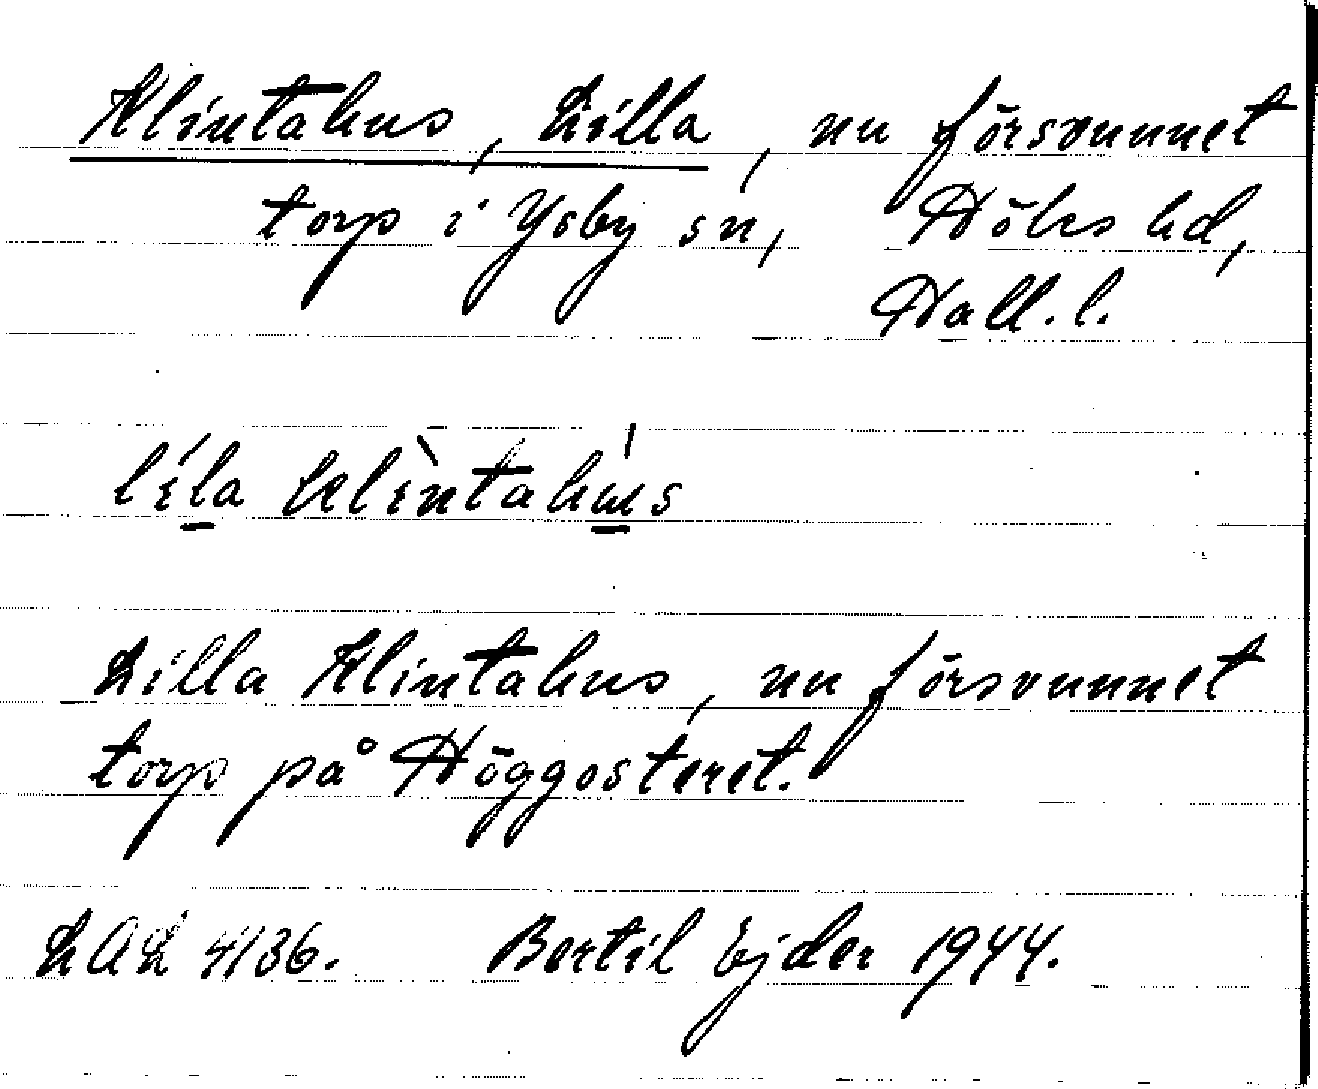 Klintahus, Lilla, nu försvunnet
torp i Ysby sn, Höks hd,
Hall. l.
líl̲a klìntahu̲s
Lilla Klintahus, nu försvunnet
torp på Höggosteret.
LAL 4136. Bertil Ejder 1944.